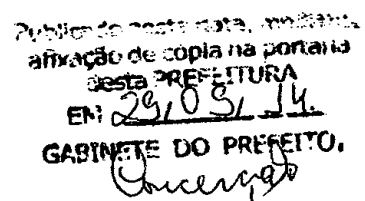 Publicado nesta data, mediante
afixação de copia na portaria
desta PREFEITURA
EM 29, 05, 14.
GABINETE DO PREFEITO,
Conceição